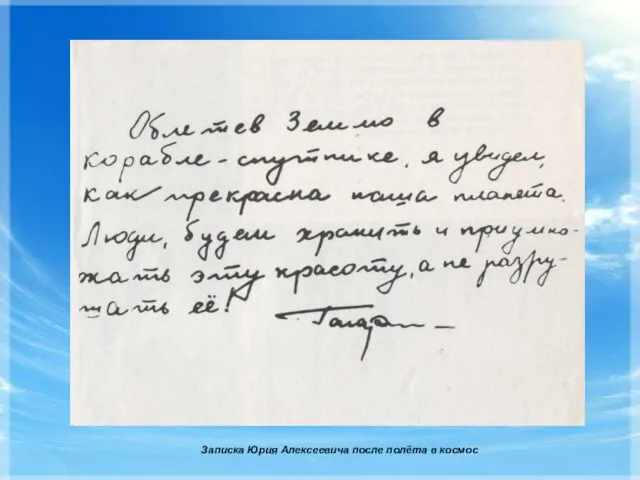 Облетев Землю в
корабле-спутнике, я увидел,
как прекрасна наша планета.
Люди, будем хранить и приумно-
жать эту красоту, а не разру-
шать её!
Гагарин
Записка Юрия Алексеевича после полёта в космос